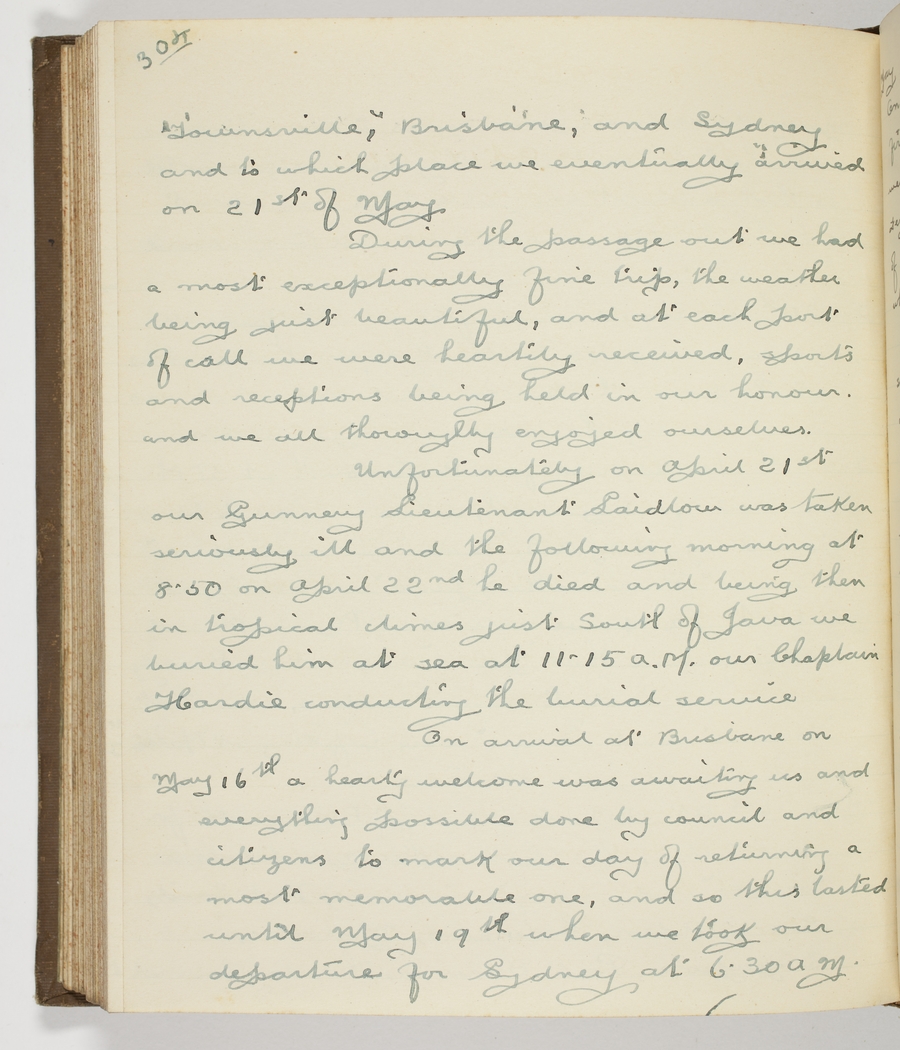 304
"Townsville", Brisbane, and Sydney
and to which place we eventually "arrived
on 21st of May.
During the passage out we had
a most exceptionally fine trip, the weather
being just beautiful, and at each port
of call we were heartily received, sports
and receptions being held in our honour.
and we all thoroughly enjoyed ourselves.
Unfortunately on April 21st
our Gunnery Lieutenant Laidlow was taken
seriously ill and the following morning at
8.50 on April 22nd he died and being then
in tropical climes just South of Java we
buried him at sea at 11-15 a.m. our Chaplain
Hardie conducting the burial service
On arrival at Brisbane on
May 16th a hearty welcome was awaiting us and
everything possible done by council and
citizens to mark our day of returning a
most memorable one, and so this lasted
until May 19th when we took our
departure for Sydney at 6.30 a.m.